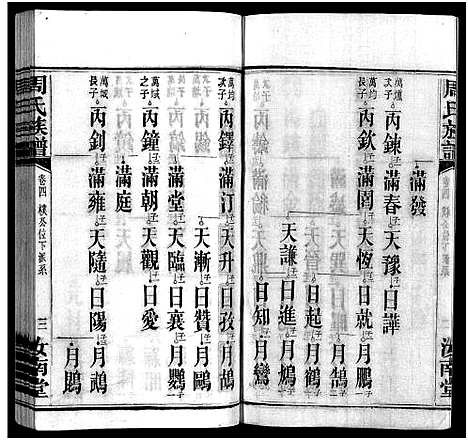 周氏族譜
卷四 樸公位下派系
汝南堂
滿發
萬爐次子 丙鍊 滿春 天豫 日譁
萬均次子 丙欽 滿南 天恆 日就 月鵬
月鵠
日起 月鶴
天謙 日進 月鳩
日知 月鸞
周氏族譜
卷四 樸公位下派系
三 汝南堂
萬爐次子 丙鐸 滿汀 天升 日孜 月鵠
天漸 日贊 月鷗
滿堂 天臨 日襄 月鸚
萬域之子 丙鐘 滿朝 天觀 日愛
滿庭
萬城長子 丙釗 滿雍 天隨 日陽 月鵡
月鵰